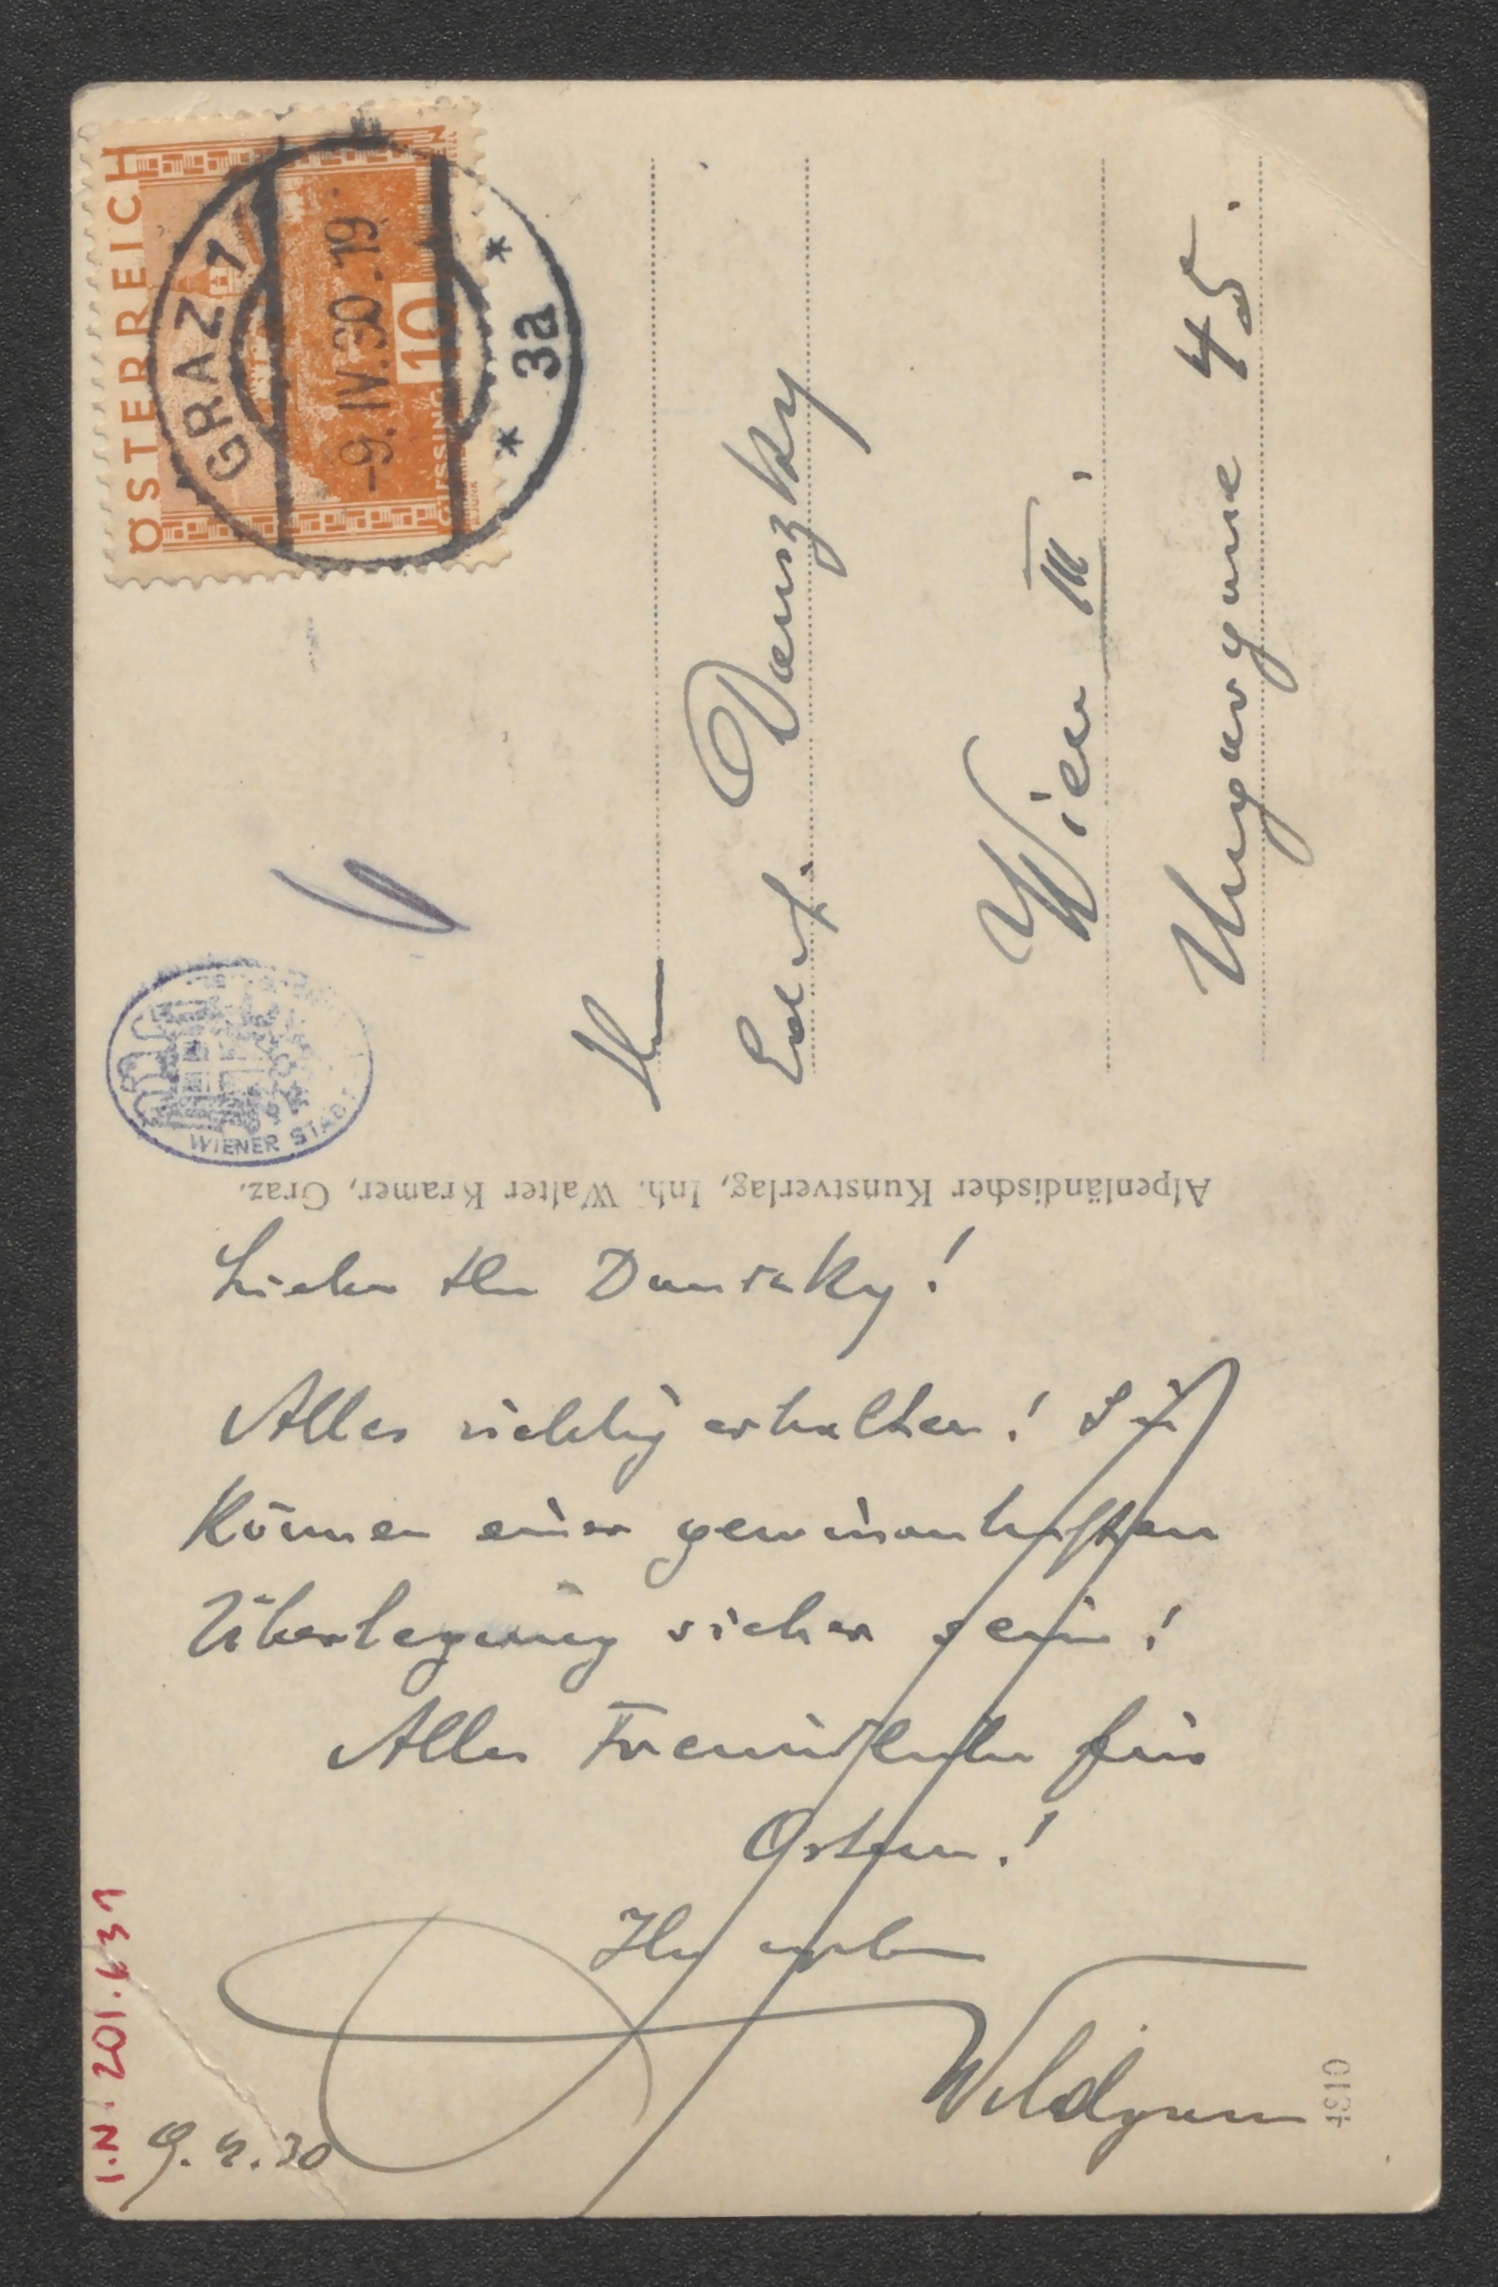 ÖSTERREICH
10
GÜSSING
GRAZ 1
-9.IV.30.19
* 3a *
WIENER STADT
Herrn
Danszky
Wien III.
Ungargasse 45.
Alpenländischer Kunstverlag, Inh. Walter Kramer, Graz.
Lieber Herr Danszky!
Alles richtig erhalten! Sie
können einer gewissenhaften
Überlegung sicher sein!
Alles Freundliche für
Ostern!
Ihr
Wildgans
9.4.30
I.N. 201.631
4310